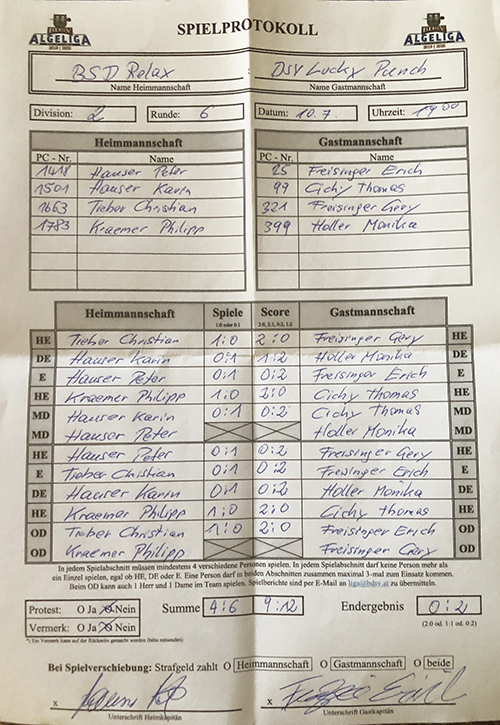 ALGELIGA SPIELPROTOKOLL ALGELIGA
2019 | 2020 2019 | 2020
BSD Relax : DSV Lucky Punch
Name Heimmannschaft Name Gastmannschaft
Division: 2 Runde: 6 Datum: 10.7. Uhrzeit: 19 00
Heimmannschaft Gastmannschaft
PC - Nr. Name PC - Nr. Name
1418 Hauser Peter 25 Freisinger Erich
1501 Hauser Karin 99 Cichy Thomas
1663 Tieber Christian 321 Freisinger Gery
1783 Kraemer Philipp 399 Holler Monika
Heimmannschaft Spiele Score Gastmannschaft
1:0 oder 0:1 2:0, 2:1, 0:2, 1:2
HE Tieber Christian 1:0 2:0 Freisinger Gery HE
DE Hauser Karin 0:1 1:2 Holler Monika DE
E Hauser Peter 0:1 0:2 Freisinger Erich E
HE Kraemer Philipp 1:0 2:0 Cichy Thomas HE
MD Hauser Karin 0:1 0:2 Cichy Thomas MD
MD Hauser Peter Holler Monika MD
HE Hauser Peter 0:1 0:2 Freisinger Gery HE
E Tieber Christian 0:1 0:2 Freisinger Erich E
DE Hauser Karin 0:1 0:2 Holler Monika DE
HE Kraemer Philipp 1:0 2:0 Cichy Thomas HE
OD Tieber Christian 1:0 2:0 Freisinger Erich OD
OD Kraemer Philipp Freisinger Gery OD
In jedem Spielabschnitt müssen mindestens 4 verschiedene Personen spielen. In jedem Spielabschnitt darf keine Person mehr als
ein Einzel spielen, egal ob HE, DE oder E. Eine Person darf in beiden Abschnitten zusammen maximal 3-mal zum Einsatz kommen.
Beim OD kann auch 1 Herr und 1 Dame im Team spielen. Spielberichte sind per E-Mail an liga@bdsv.at zu übermitteln.
Protest: O Ja O Nein Summe 4:6 9:12 Endergebnis 0:2
Vermerk: O Ja O Nein (2:0 od. 1:1 od. 0:2)
*) Ein Vermerk kann auf der Rückseite gemacht werden (bitte mitsenden)
Bei Spielverschiebung: Strafgeld zahlt O Heimmannschaft O Gastmannschaft O beide
x x
Unterschrift Heimkapitän Unterschrift Gastkapitän